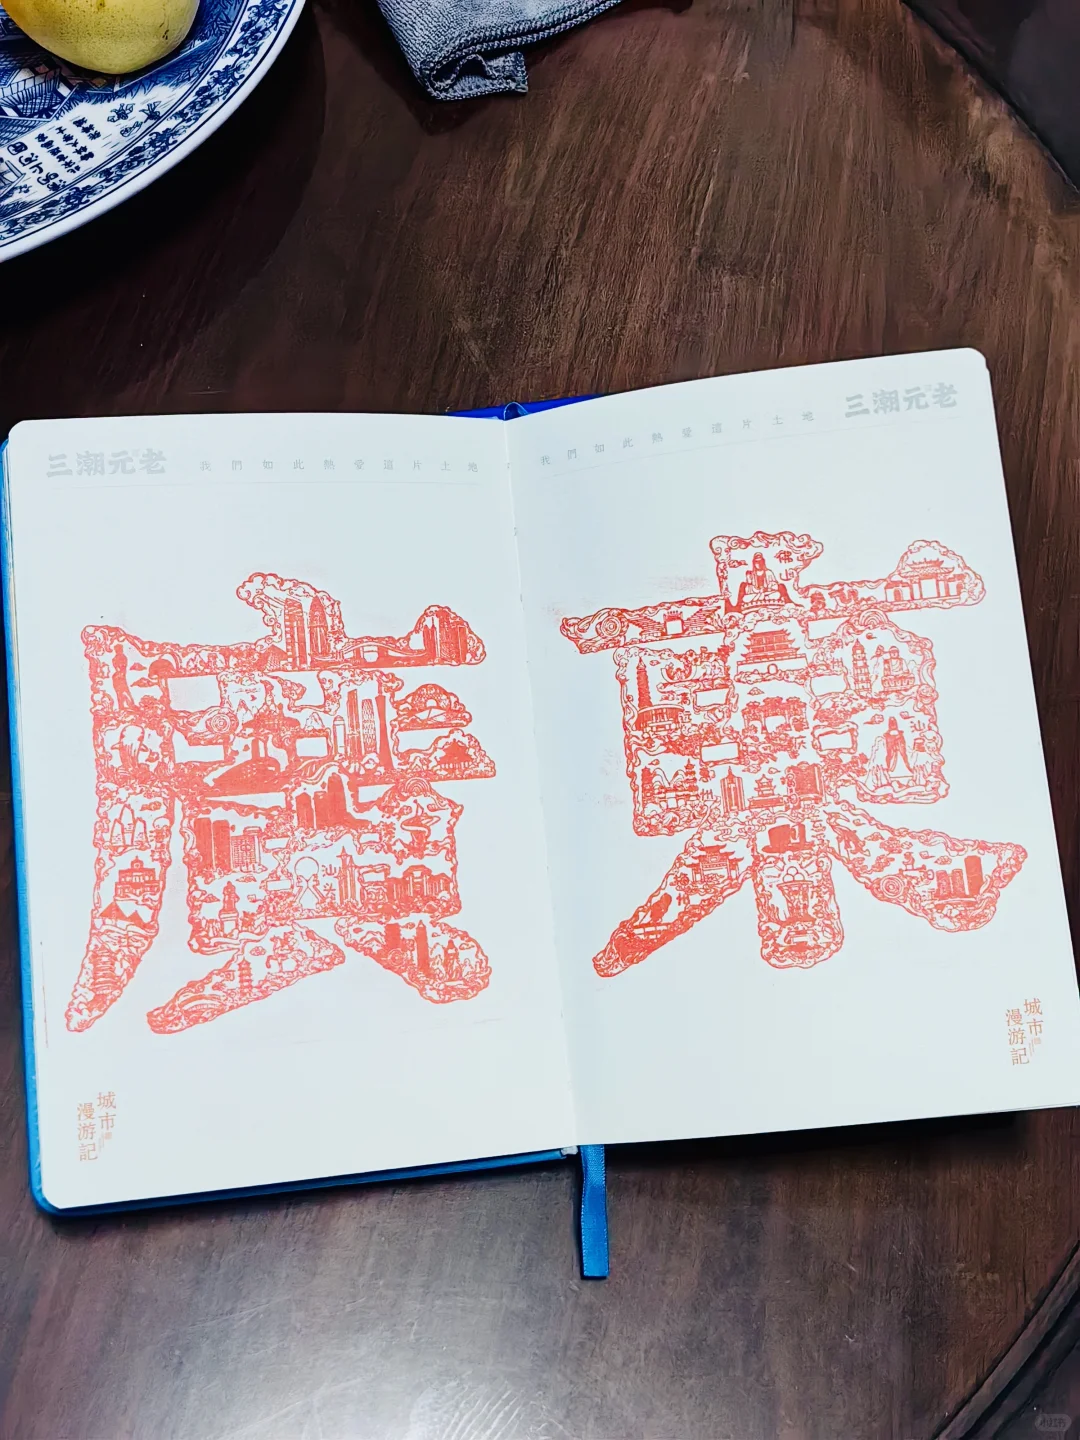 三潮元老 我們如此熱愛這片土地
廣
汕头
城市
漫游記
我們如此熱愛這片土地 三潮元老
東
佛山
汕
城市
漫游記